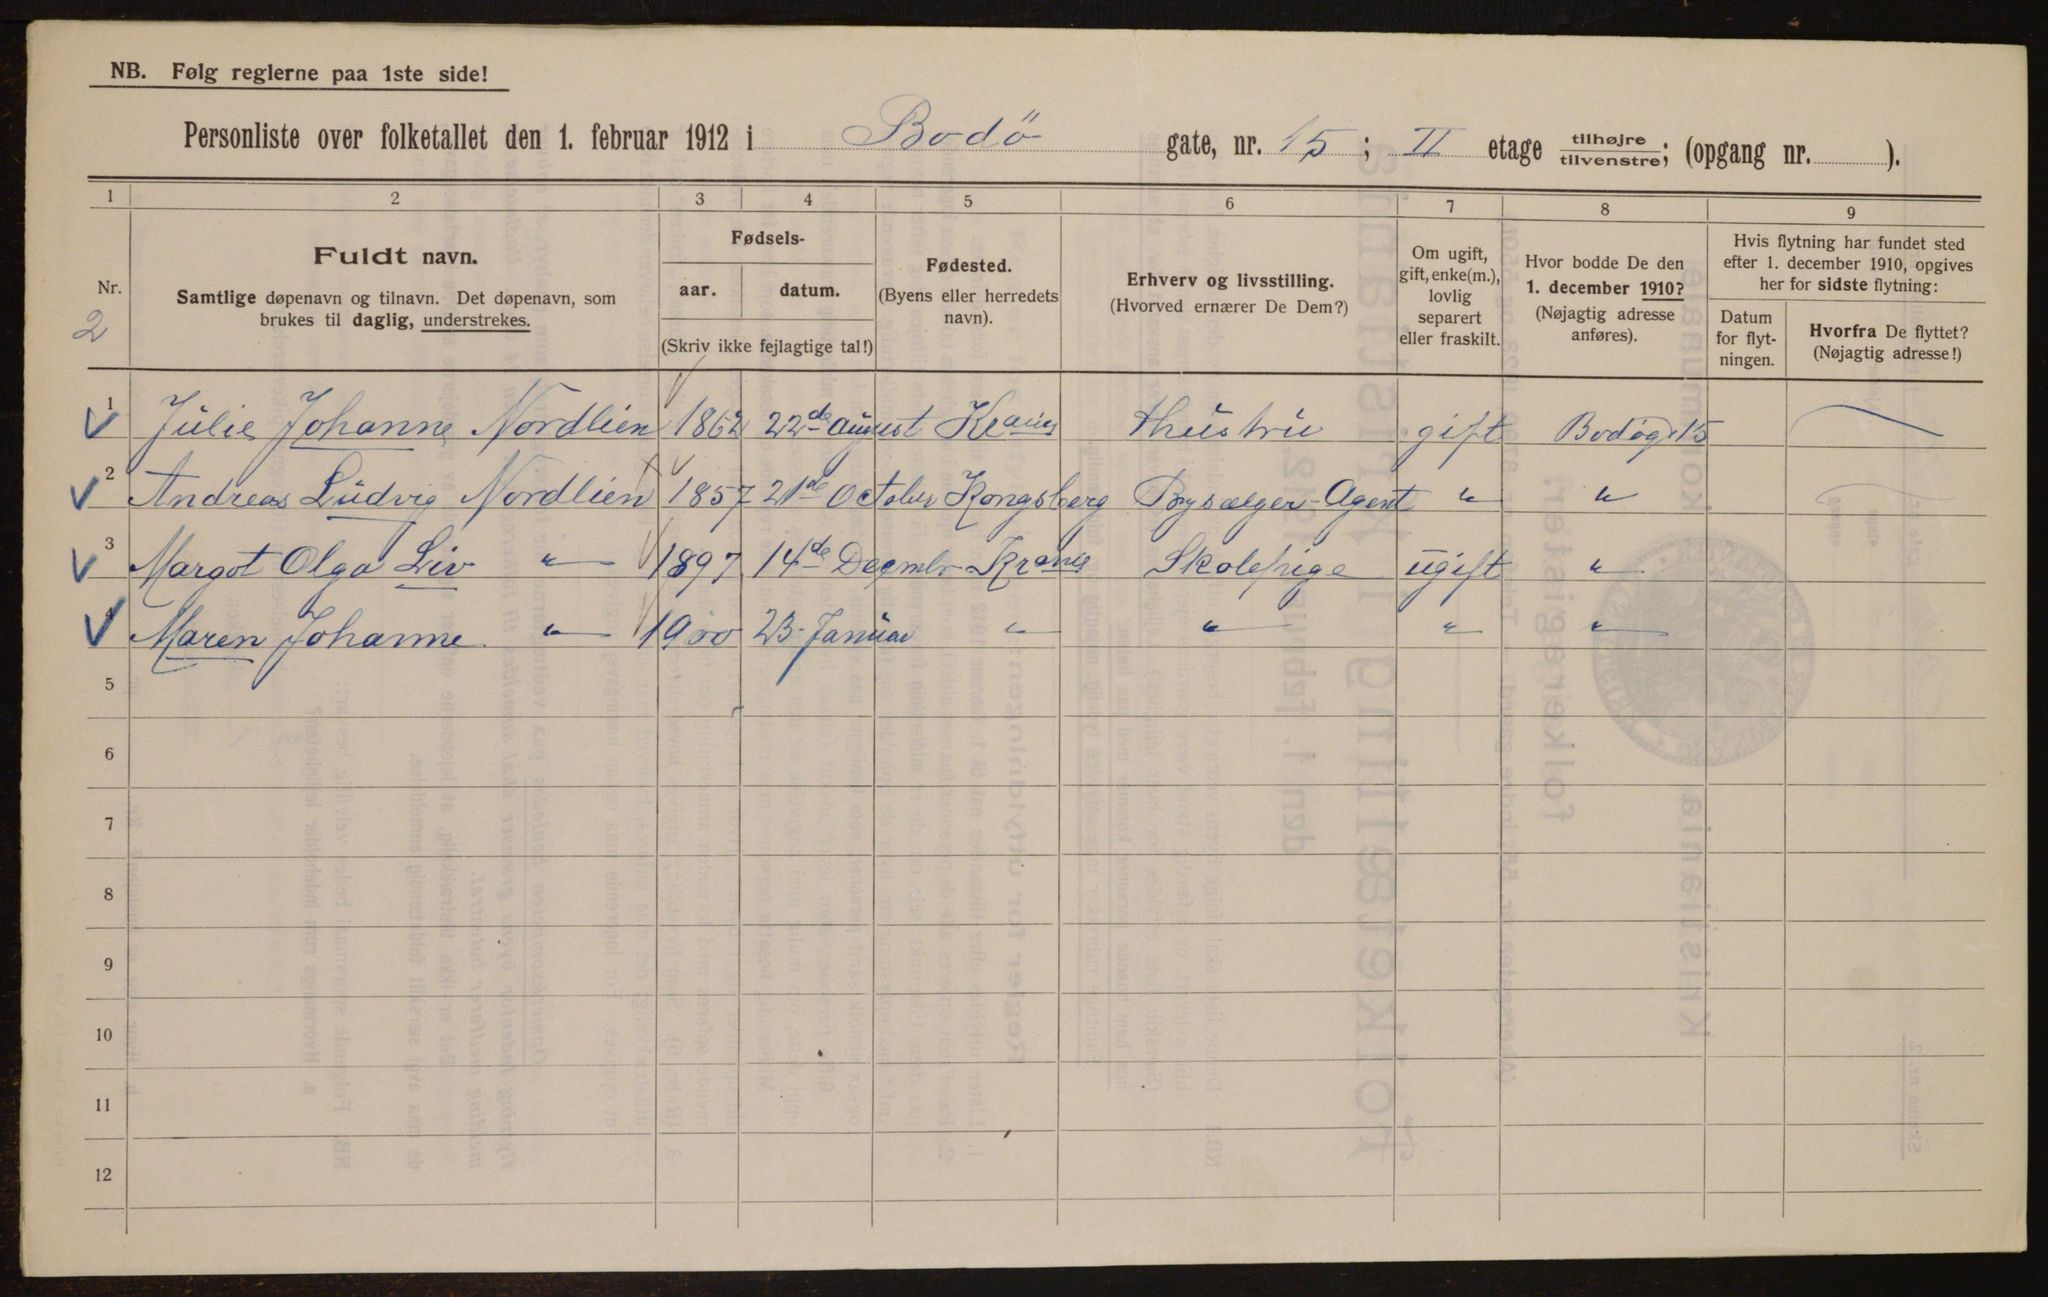 NB. Følg reglerne paa 1ste side!
Personliste over folketallet den 1. februar 1912 i Bodø gate, nr. 15; II etage tilhøjre/tilvenstre; (opgang nr. ).
1 2 3 4 5 6 7 8 9
Nr. 2
Fuldt navn.
Samtlige døpenavn og tilnavn. Det døpenavn, som
brukes til daglig, understrekes.
Fødsels-
aar. datum.
(Skriv ikke fejlagtige tal!)
Fødested.
(Byens eller herredets
navn).
Erhverv og livsstilling.
(Hvorved ernærer De Dem?)
Om ugift,
gift, enke(m.),
lovlig
separert
eller fraskilt.
Hvor bodde De den
1. december 1910?
(Nøjagtig adresse
anføres).
Hvis flytning har fundet sted
efter 1. december 1910, opgives
her for sidste flytning:
Datum
for flyt-
ningen.
Hvorfra De flyttet?
(Nøjagtig adresse!)
1 Julie Johanne Nordlien 1862 22de august Krania Hustru gift Bodøgt 15
2 Andreas Ludvig Nordlien 1857 21de October Kongsberg Bysælger-Agent " "
3 Margot Olga Liv " 1897 14de Decembr Krania Skolepige ugift "
4 Maren Johanne " 1900 23 Januar " " " "
5
6
7
8
9
10
11
12